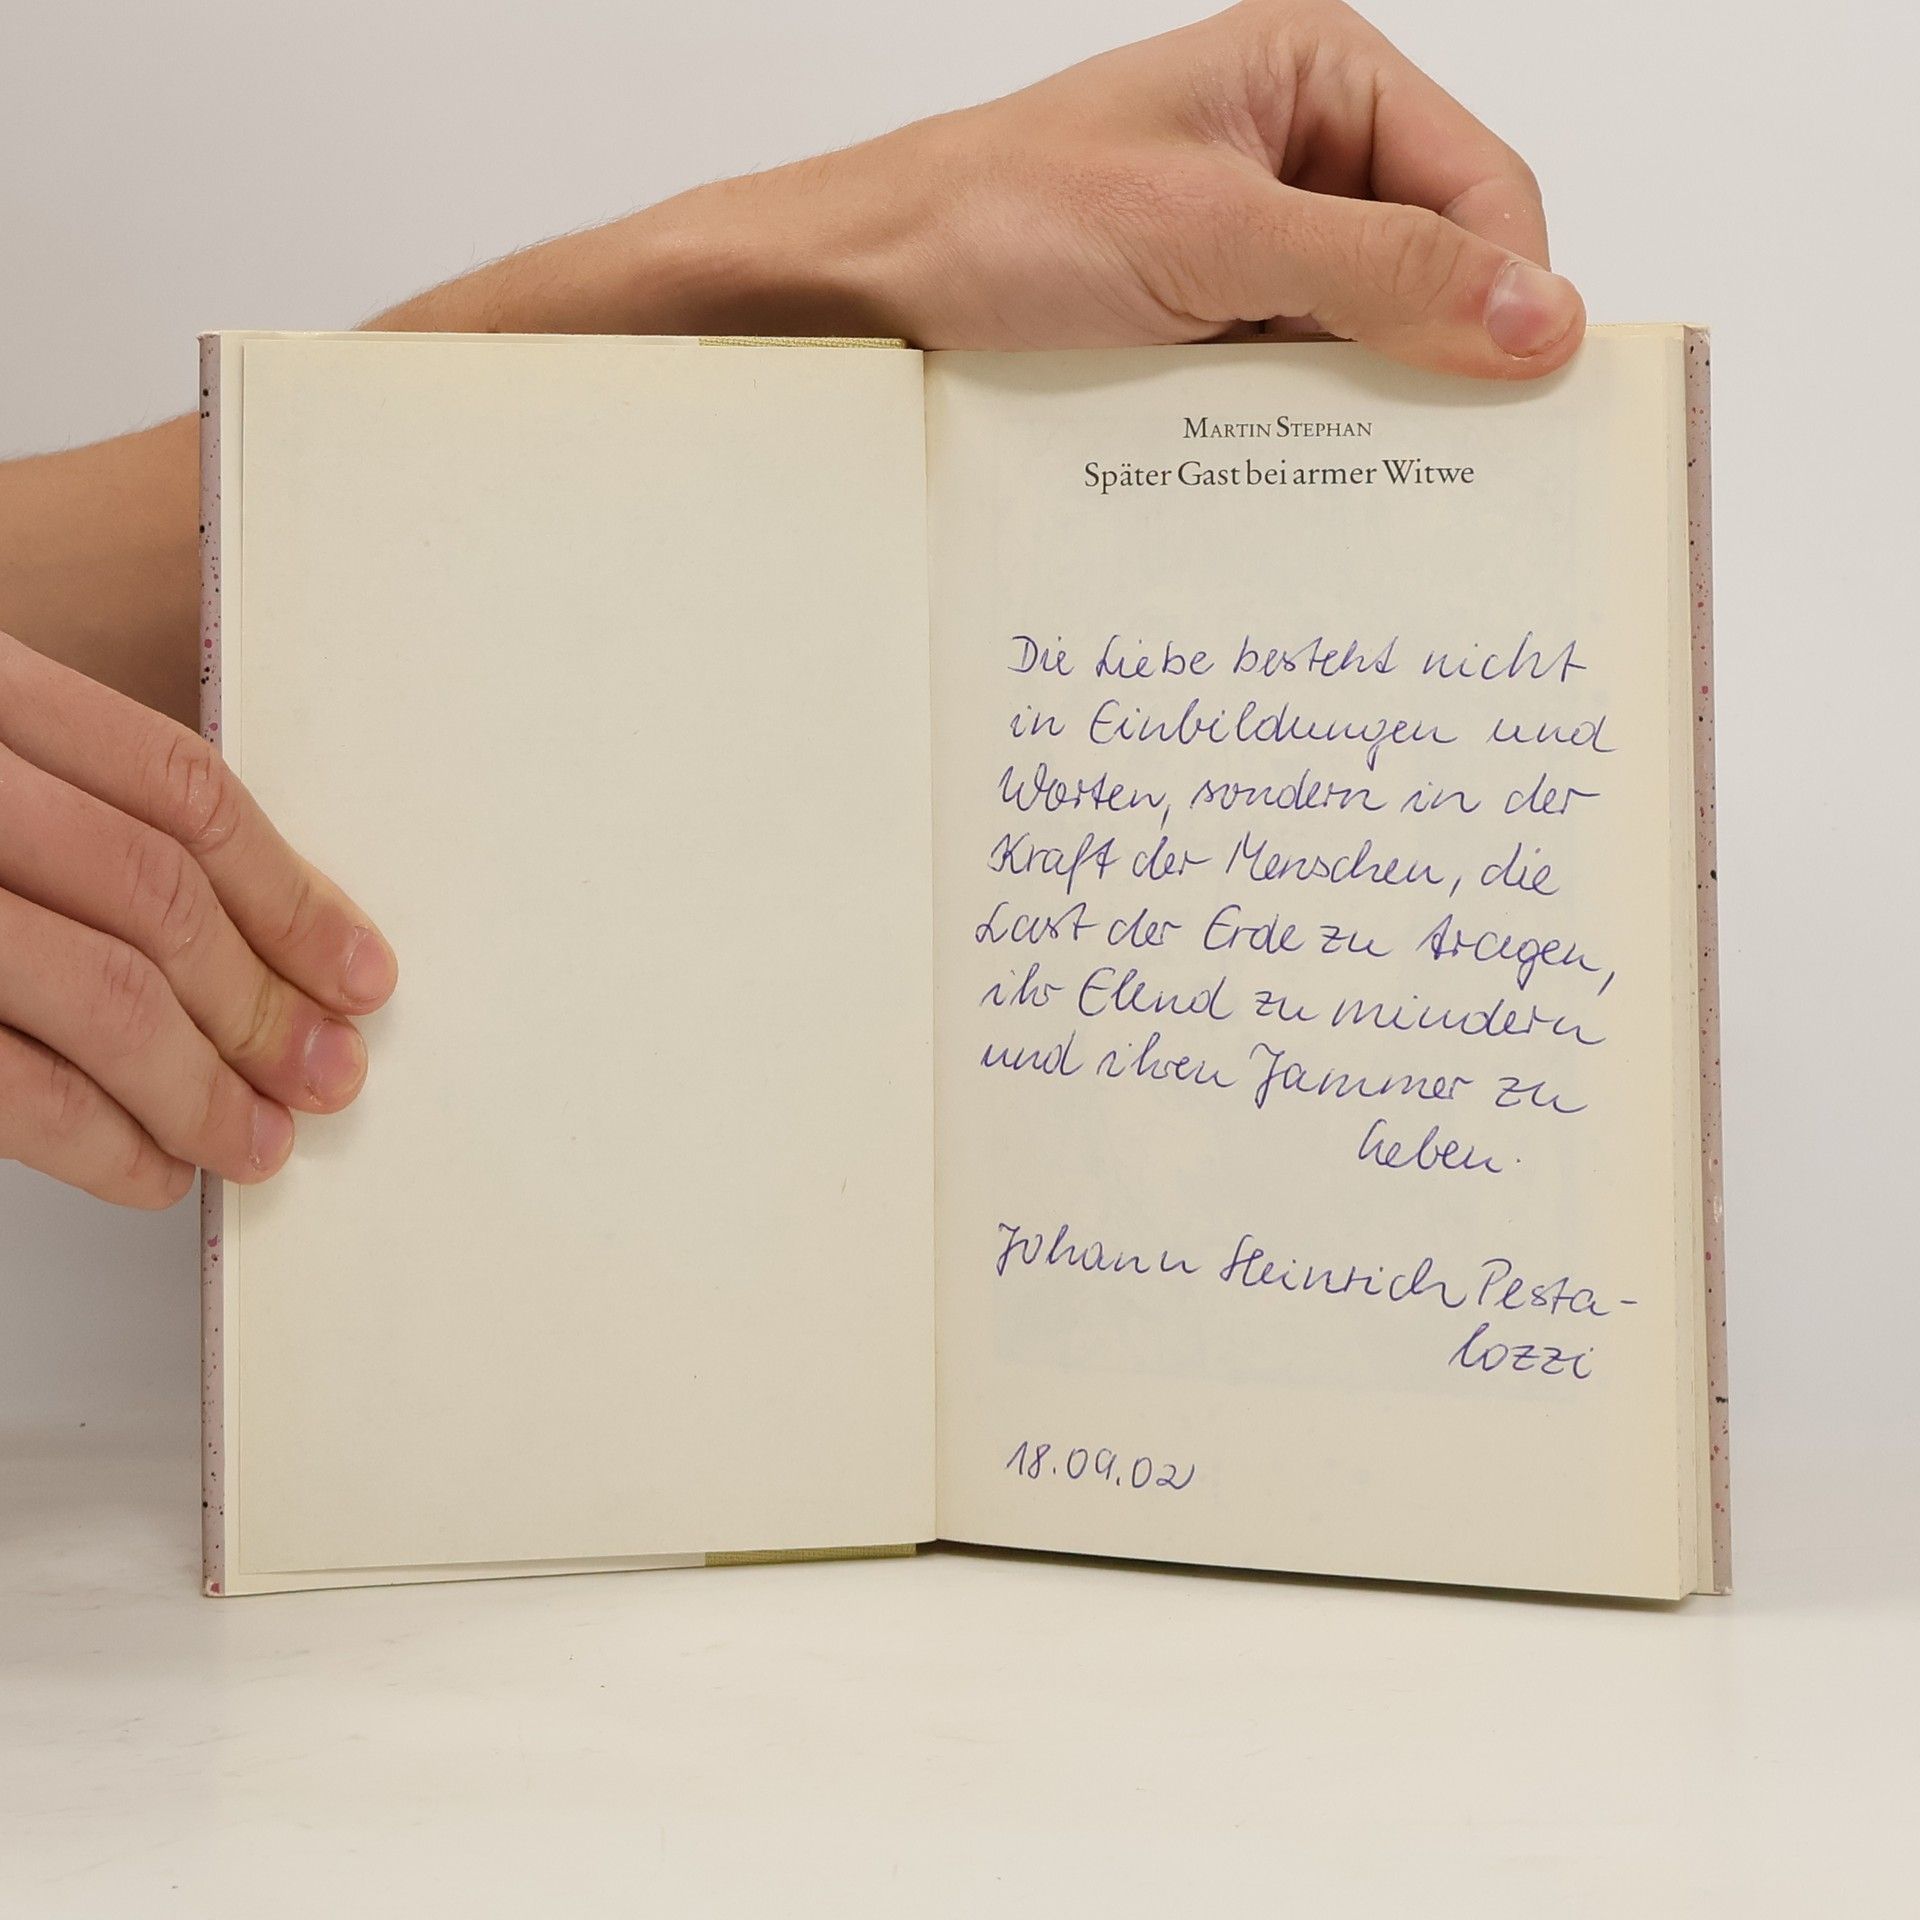 MARTIN STEPHAN
Später Gast bei armer Witwe
Die Liebe besteht nicht
in Einbildungen und
Worten, sondern in der
Kraft der Menschen, die
Last der Erde zu tragen,
ihr Elend zu mindern
und ihren Jammer zu
heben.
Johann Heinrich Pesta-
lozzi
18.09.02